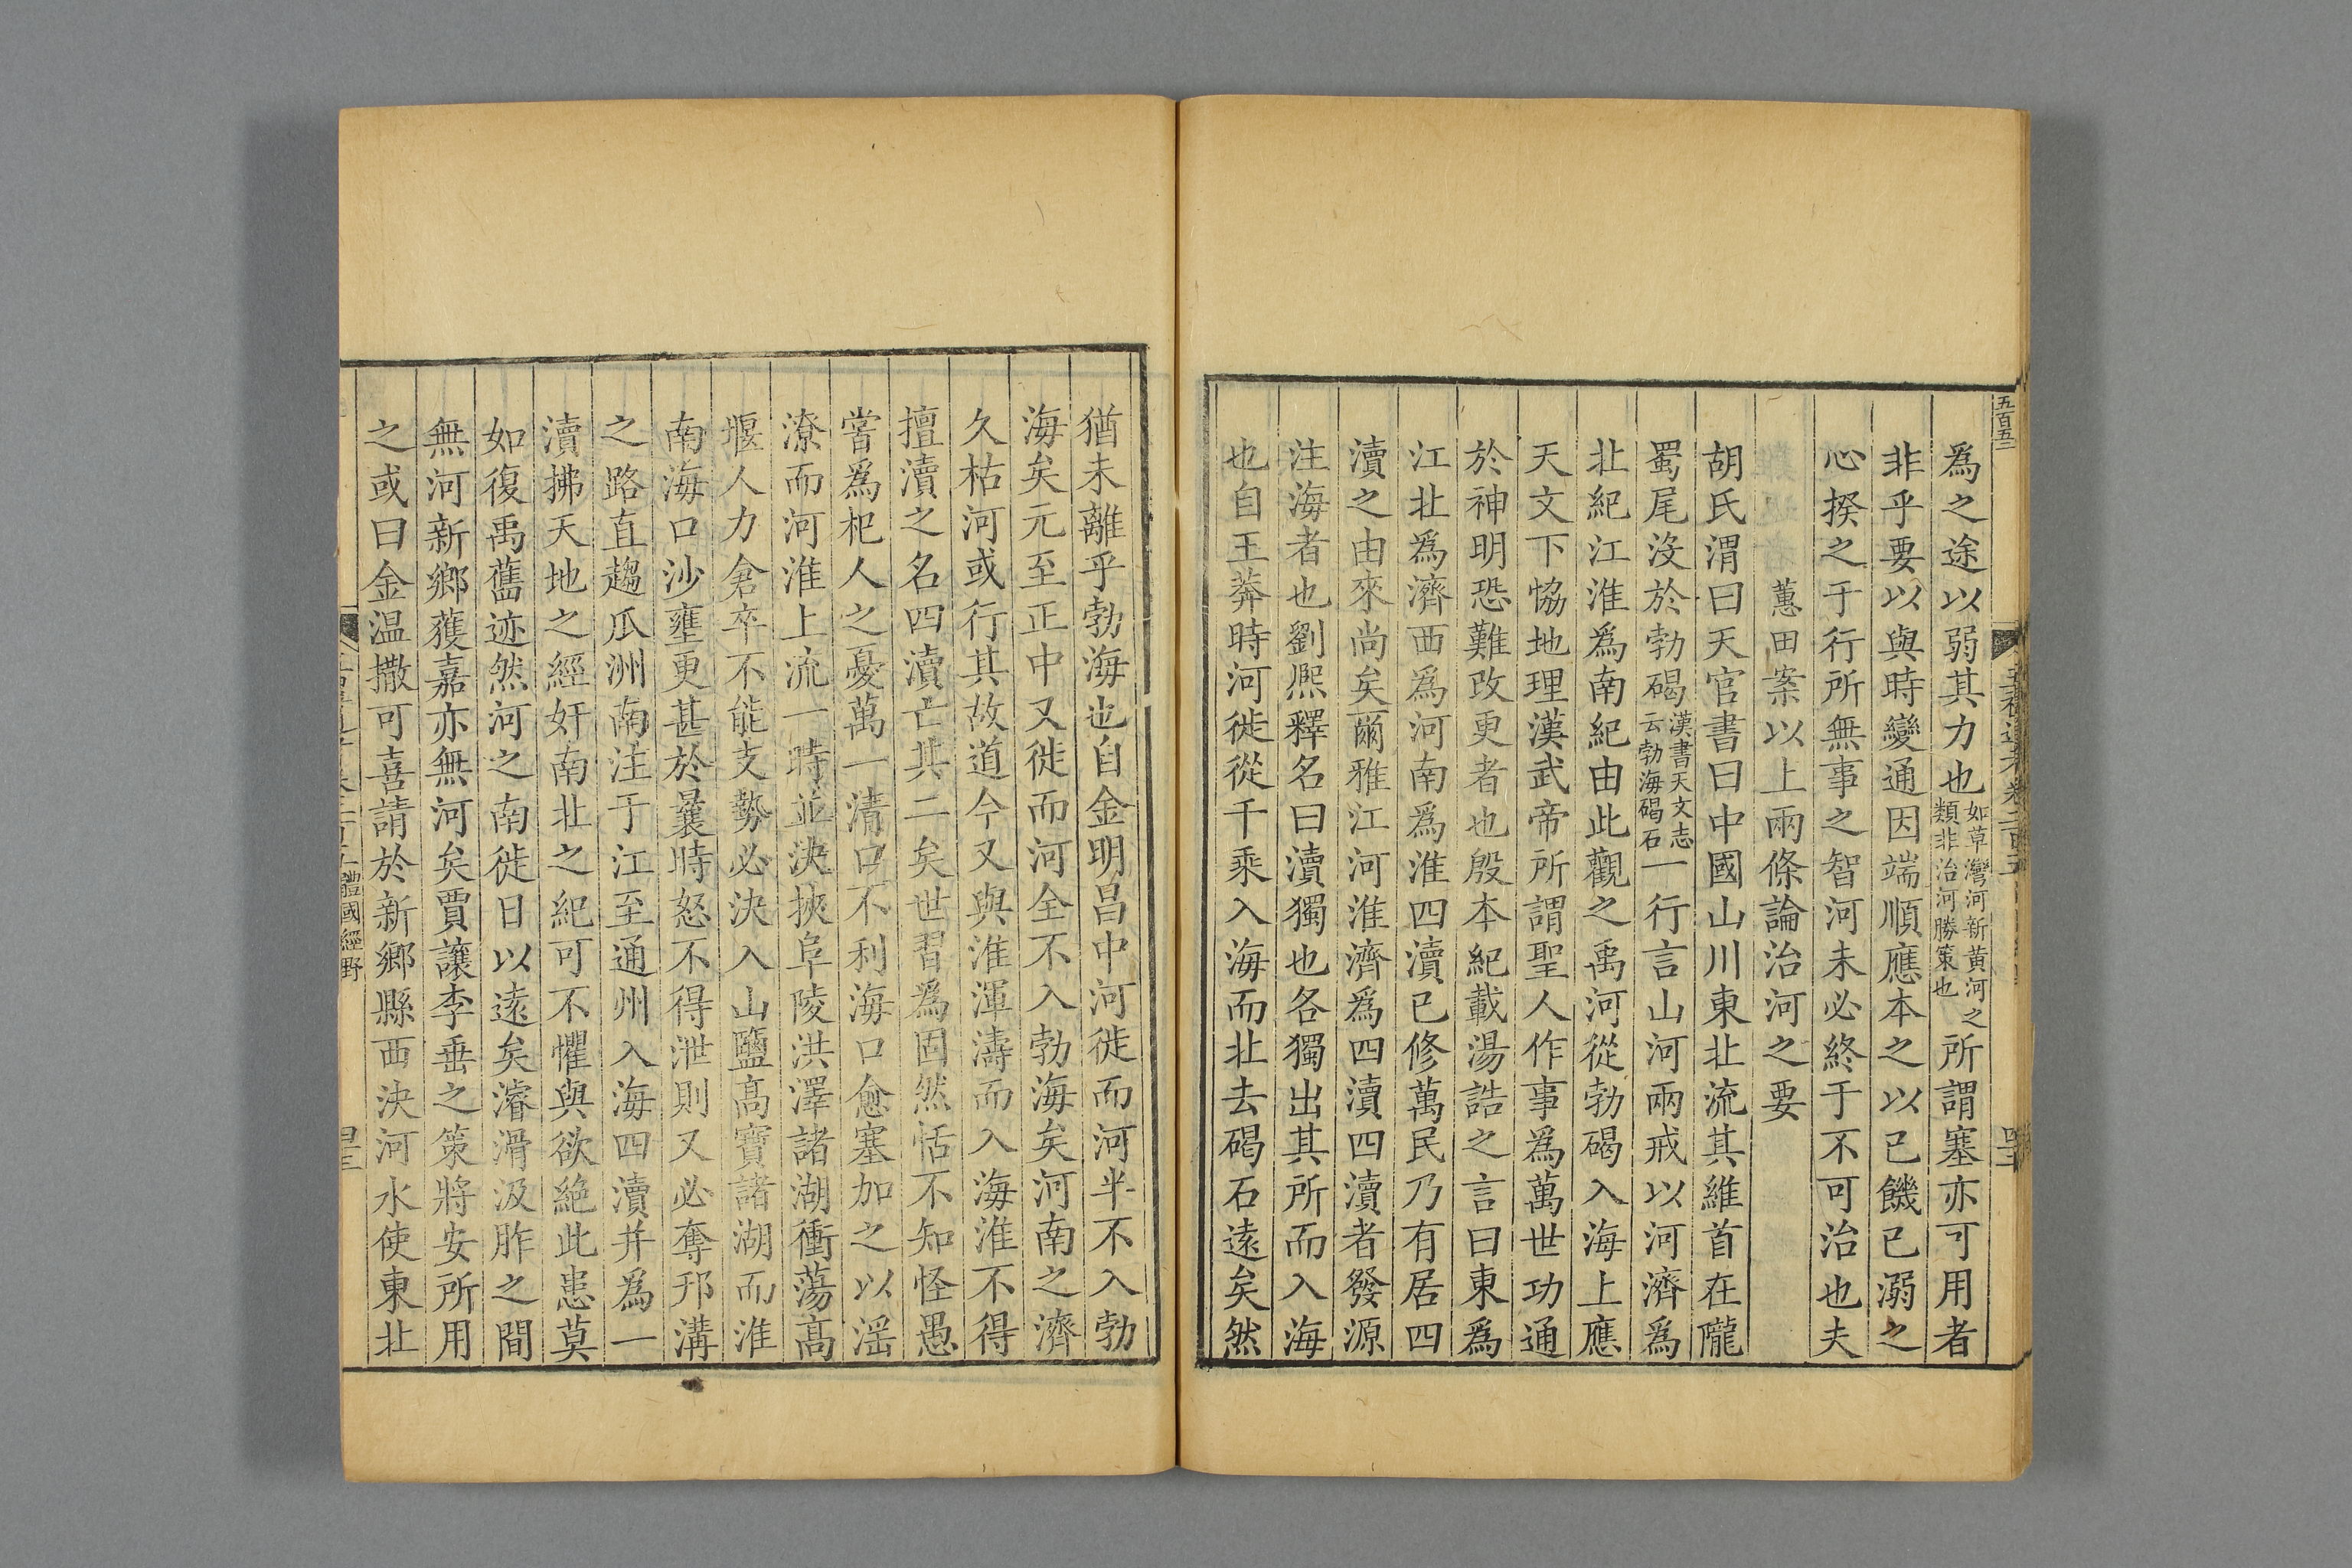 五百五二
爲之途以弱其力也如草灣河新黄河之類非治河勝策也所謂塞亦可用者
非乎要以與時變通因端順應本之以已饑已溺之
心揆之于行所無事之智河未必終于不可治也夫
蕙田案以上兩條論治河之要
胡氏渭曰天官書曰中國山川東北流其維首在隴
蜀尾沒於勃碣漢書天文志云勃海碣石一行言山河兩戒以河濟爲
北紀江淮爲南紀由此觀之禹河從勃碣入海上應
天文下恊地理漢武帝所謂聖人作事爲萬世功通
於神明恐難改更者也殷本紀載湯誥之言曰東爲
江北爲濟西爲河南爲淮四瀆已修萬民乃有居四
瀆之由來尚矣爾雅江河淮濟爲四瀆四瀆者發源
注海者也劉熙釋名曰瀆獨也各獨出其所而入海
也自王莽時河徙從千乘入海而北去碣石遠矣然
猶未離乎勃海也自金明昌中河徙而河半不入勃
海矣元至正中又徙而河全不入勃海矣河南之濟
久枯河或行其故道今又與淮渾濤而入海淮不得
擅瀆之名四瀆亡其二矣世習爲固然恬不知怪愚
嘗爲杞人之憂萬一清口不利海口愈塞加之以滛
潦而河淮上流一時並決挾阜陵洪澤諸湖衝蕩高
堰人力倉卒不能支勢必決入山鹽高寶諸湖而淮
南海口沙壅更甚於曩時怒不得泄則又必奪邗溝
之路直趨瓜洲南注于江至通州入海四瀆并爲一
瀆拂天地之經奸南北之紀可不懼與欲絶此患莫
如復禹舊迹然河之南徙日以遠矣濬滑汲胙之間
無河新鄉獲嘉亦無河矣賈讓李垂之策將安所用
之或曰金温撒可喜請於新鄉縣西決河水使東北
體國經野